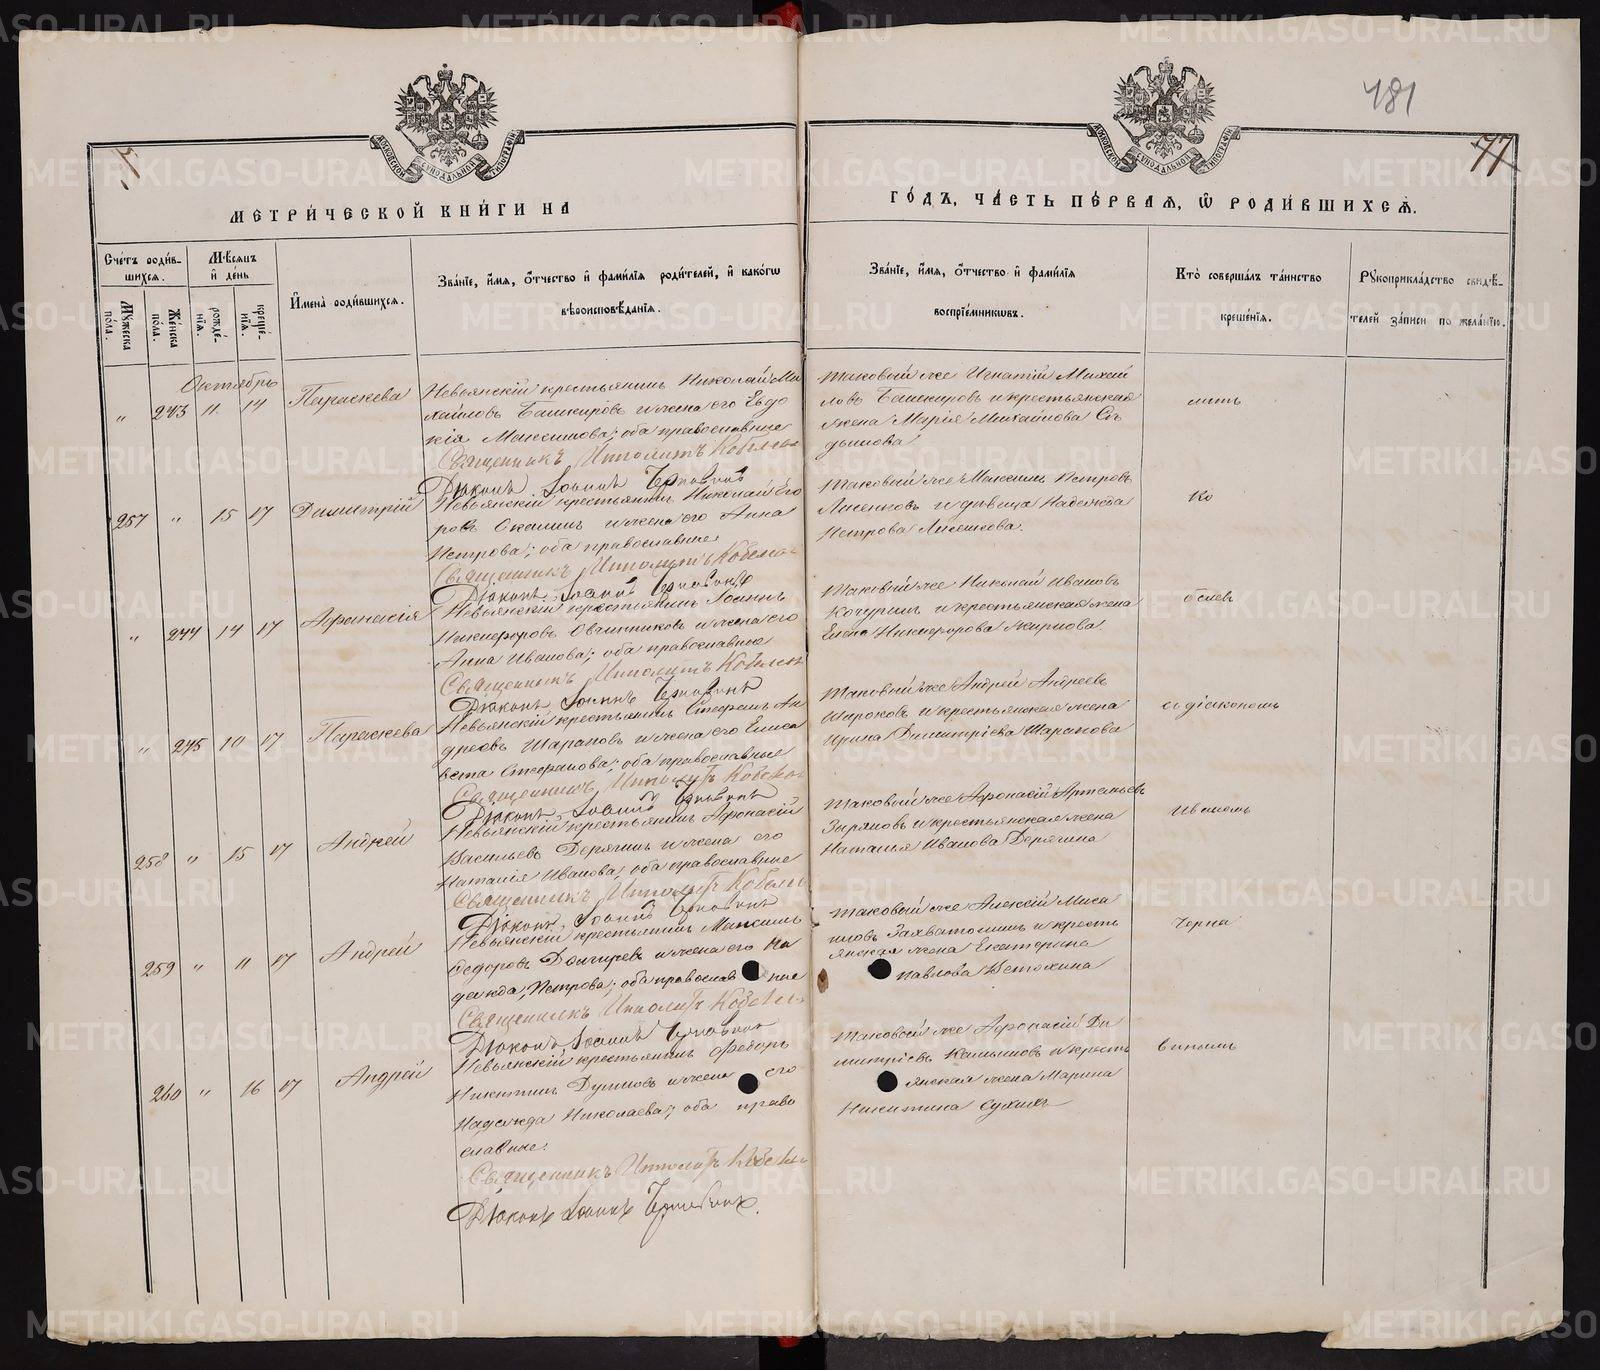 181
77
МЕТРИ́ЧЕСКОЙ КНИ́ГИ НА
ГО́ДЪ, ЧА́СТЬ ПЕ́РВАѦ, Ѡ РОДИ́ВШИХСѦ.
Сче́тъ роди́в-
шихсѧ.
Мꙋ́жеска по́ла.
Же́нска по́ла.
Мѣ́сѧцъ и де́нь
рожде́-
нїѧ.
креще́-
нїѧ.
И҆мена̀ роди́вшихсѧ.
Зва́нїе, и҆́мѧ, ѻ҆́тчество и҆ фами́лїѧ роди́телей, и҆ како́гѡ
вѣроисповѣ́данїѧ.
Зва́нїе, и҆́мѧ, ѻ҆́тчество и҆ фами́лїѧ
воспрїе́мникѡвъ.
Кто̀ соверша́лъ та́инство
креще́нїѧ.
Рꙋкоприкла́дство свидѣ́-
телей за́писи по жела́нїю.
Октябрь
" 243 11 14 Параскева
Невьянскій крестьянинъ Николай Ми
хайловъ Башкировъ и жена его Евдо
кія Максимова; оба православные
Священникъ Ипполитъ
Діаконъ Іоаннъ
Таковый же Игнатій Михай
ловъ Башкировъ и крестьянская
жена Марія Михайлова
литъ
257 " 15 17 Димитрій
Невьянскій крестьянинъ Николай Его
ровъ и жена его Анна
Петрова; оба православные
Священникъ Ипполитъ
Діаконъ Іоаннъ
Таковый же Максимъ Петровъ
и дѣвица Надежда
Петрова
Ко
" 244 14 17 Афанасія
Невьянскій крестьянинъ Іоаннъ
Никифоровъ Овчинниковъ и жена его
Анна Иванова; оба православные
Священникъ Ипполитъ
Діаконъ Іоаннъ
Таковый же Николай Ивановъ
и крестьянская жена
Елена Никифорова
белевъ
" 245 10 17 Параскева
Невьянскій крестьянинъ Стефанъ Ан
дреевъ Шараповъ и жена его Елиса
вета Стефанова; оба православные
Священникъ Ипполитъ
Діаконъ Іоаннъ
Таковый же Андрей Андреевъ
Широковъ и крестьянская жена
Ирина Димитріева Шарапова
съ діакономъ
258 " 15 17 Андрей
Невьянскій крестьянинъ Афонасій
Васильевъ Дерягинъ и жена его
Наталія Иванова; оба православные
Священникъ Ипполитъ
Діаконъ Іоаннъ
Таковый же Афонасій Артемьевъ
Зыряновъ и крестьянская жена
Наталья Иванова Дерягина
Иваномъ
259 " 11 17 Андрей
Невьянскій крестьянинъ Максимъ
Федоровъ и жена его На
дежда Петрова; оба православные
Священникъ Ипполитъ
Діаконъ Іоаннъ
Таковый же Алексій
Захватошинъ и кресть
янская жена Екатерина
Павлова Ветошкина
Черна
260 " 16 17 Андрей
Невьянскій крестьянинъ Федоръ
Никитинъ и жена его
Надежда Николаева; оба право
славные.
Священникъ Ипполитъ
Діаконъ Іоаннъ
Таковый же Афонасій Ди
митріевъ и кресть
янская жена Марина
Никитина Сухихъ
винымъ
METRIKI.GASO-URAL.RU